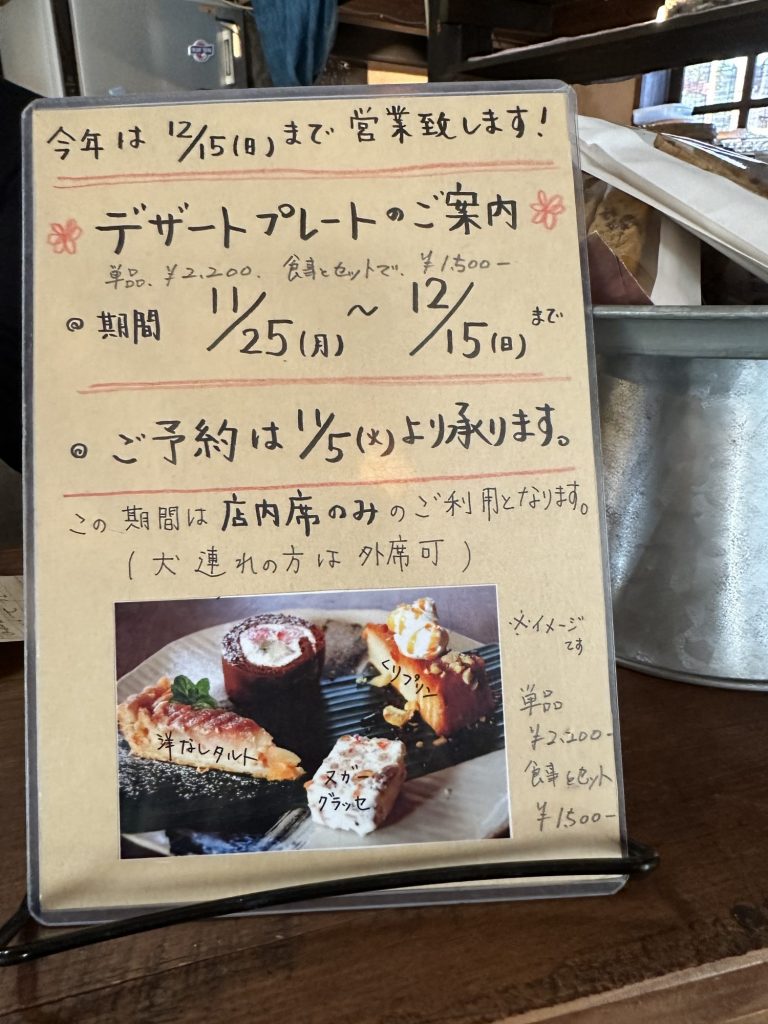 今年は 12/15(日)まで 営業致します!
デザートプレートのご案内
単品、¥2,200、食事とセットで、¥1,500-
◎ 期間 11/25(月) ~ 12/15(日)まで
◎ ご予約は 11/5(火)より承ります。
この期間は 店内席のみのご利用となります。
(犬連れの方は外席可)
※イメージ
です
くりプリン
洋なしタルト
ヌガー
グラッセ
単品
¥2,200-
食事とセット
¥1,500-